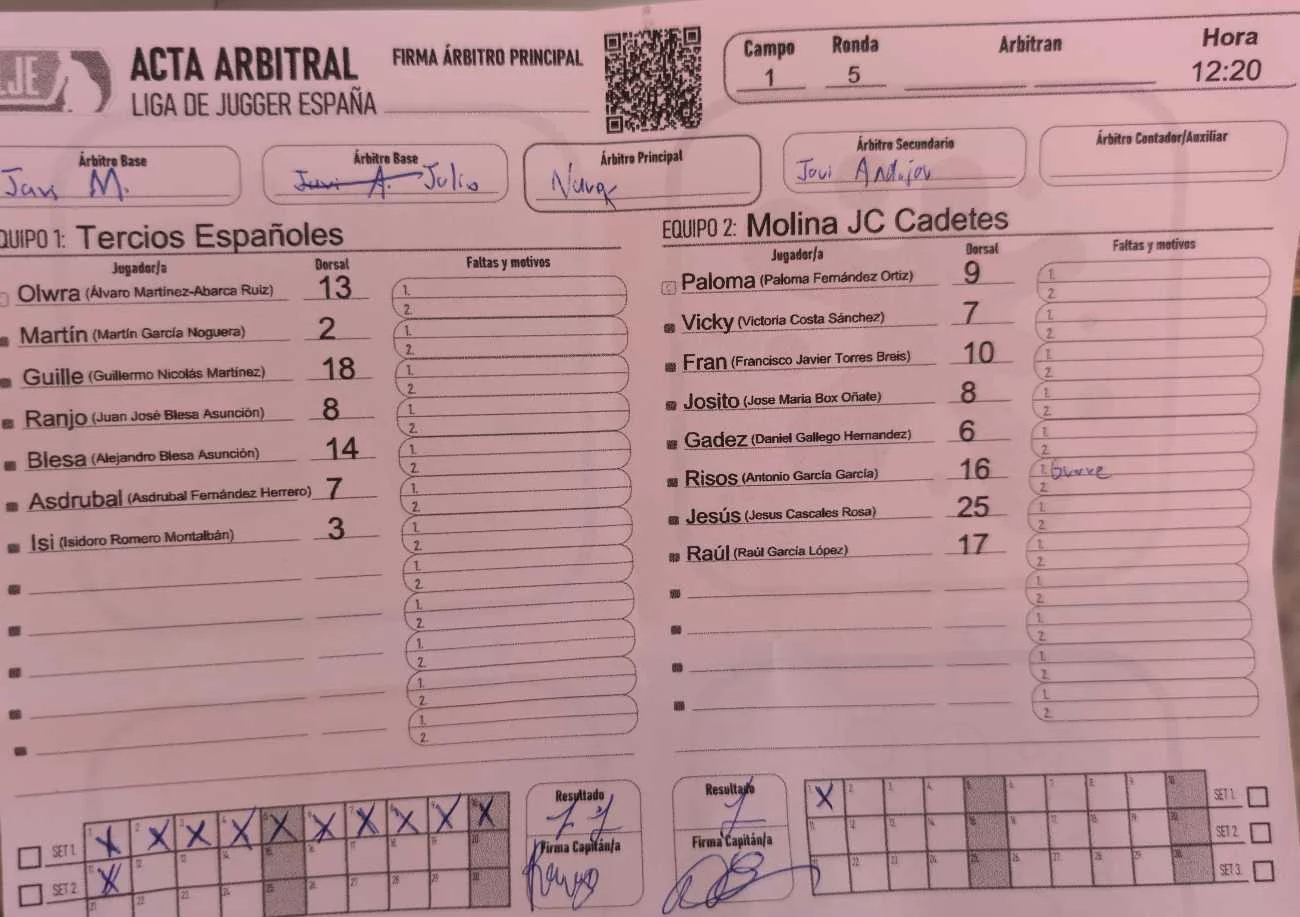 JE
ACTA ARBITRAL
LIGA DE JUGGER ESPAÑA
FIRMA ÁRBITRO PRINCIPAL
Campo Ronda Arbitran Hora
1 5 12:20
Árbitro Base
Javi M.
Árbitro Base
Javi A. Julio
Árbitro Principal
Árbitro Secundario
Javi Andujar
Árbitro Contador/Auxiliar
EQUIPO 1: Tercios Españoles
Jugador/a Dorsal Faltas y motivos
Olwra (Álvaro Martinez-Abarca Ruiz) 13 1. 2.
Martín (Martín García Noguera) 2 1. 2.
Guille (Guillermo Nicolás Martínez) 18 1. 2.
Ranjo (Juan José Blesa Asunción) 8 1. 2.
Blesa (Alejandro Blesa Asunción) 14 1. 2.
Asdrubal (Asdrubal Fernández Herrero) 7 1. 2.
Isi (Isidoro Romero Montalbán) 3 1. 2.
1. 2.
1. 2.
1. 2.
1. 2.
1. 2.
EQUIPO 2: Molina JC Cadetes
Jugador/a Dorsal Faltas y motivos
Paloma (Paloma Fernández Ortiz) 9 1. 2.
Vicky (Victoria Costa Sánchez) 7 1. 2.
Fran (Francisco Javier Torres Breis) 10 1. 2.
Josito (Jose Maria Box Oñate) 8 1. 2.
Gadez (Daniel Gallego Hernandez) 6 1. 2.
Risos (Antonio García García) 16 1. 2.
Jesús (Jesus Cascales Rosa) 25 1. 2.
Raúl (Raúl García López) 17 1. 2.
1. 2.
1. 2.
1. 2.
1. 2.
SET 1.
SET 2.
Resultado
11
Firma Capitán/a
Resultado
1
Firma Capitán/a
SET 1.
SET 2.
SET 3.